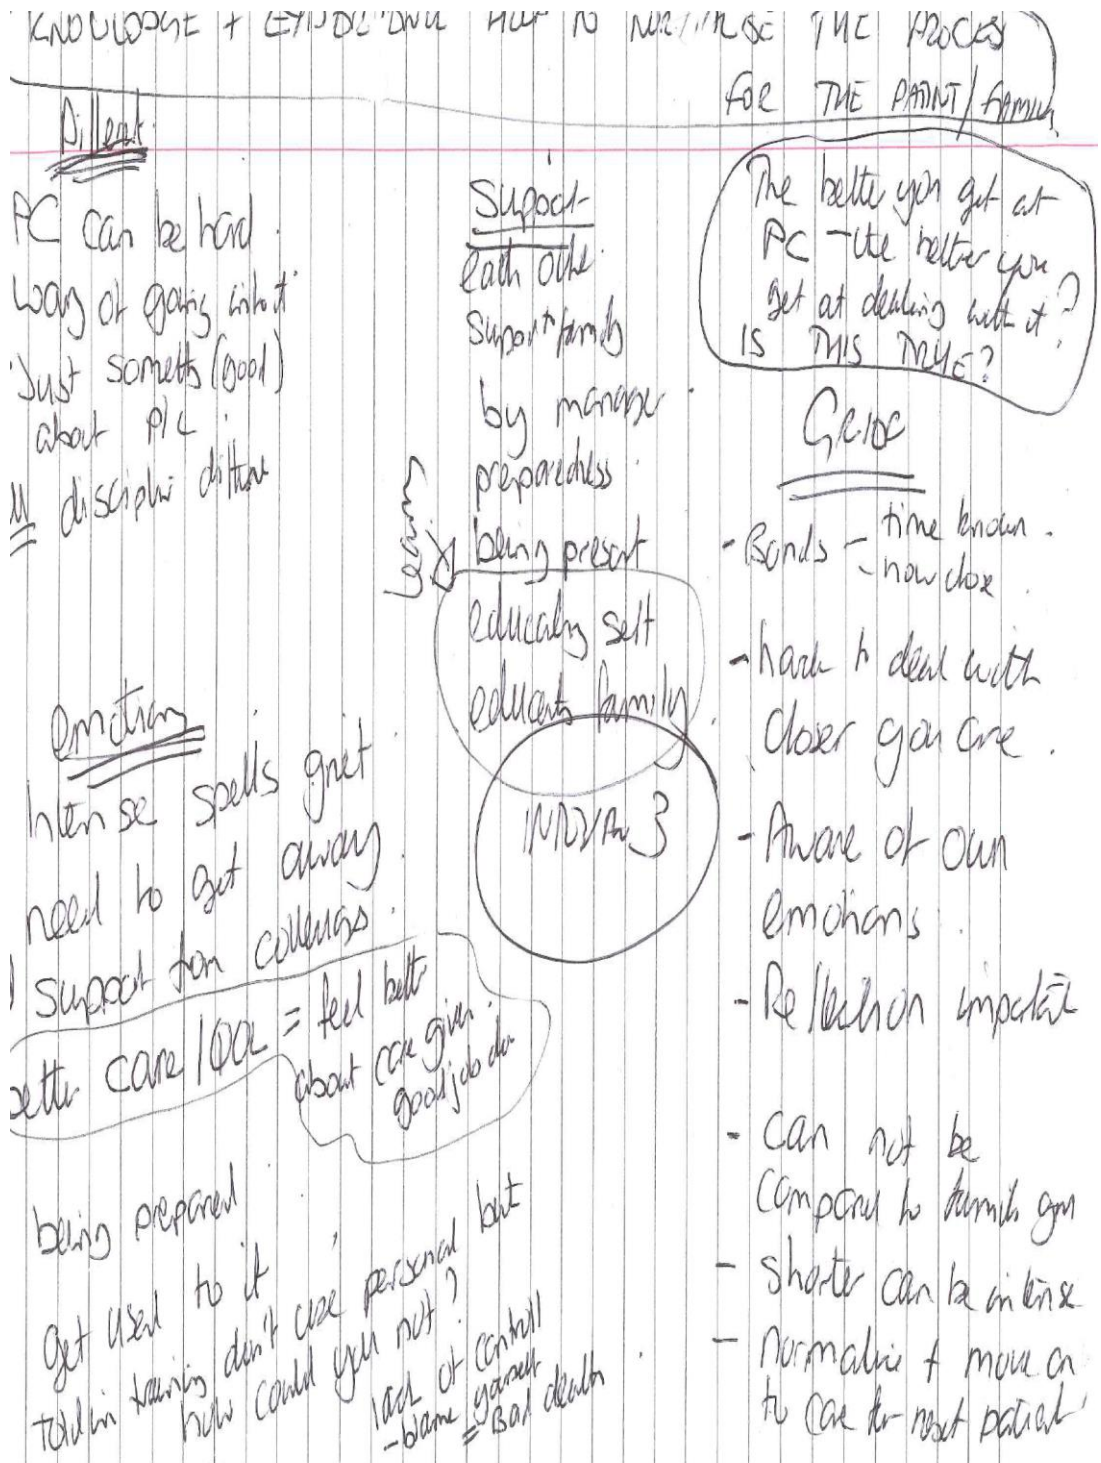 KNOWLEDGE + EXPERIENCE HELP TO NORMALISE THE PROCESS
FOR THE PATINT/FAMILY
PC can be hard
way of going into it
Just someth (good)
about P/C
discipline
emotion
Intense spells grief
need to get away
support from
better care/QOL = feel bett
about care given.
good job don
being prepared
get used to it
told in training don't use personal but
how could you not?
lack of controll
- blame yourself
= Bad death
Support
each othe
support family
by manager
preparedness
being present
Learning
educating self
educate family
3
The better you get at
PC - the better you
get at dealing with it?
IS THIS TRUE?
Grief
- Bonds - time known.
- how close
- hard to deal with
closer you are.
- Aware of own
emotions
- Reflection important
- can not be
compared to family
- shorter can be intense
- normalise + move on
to care for next patient